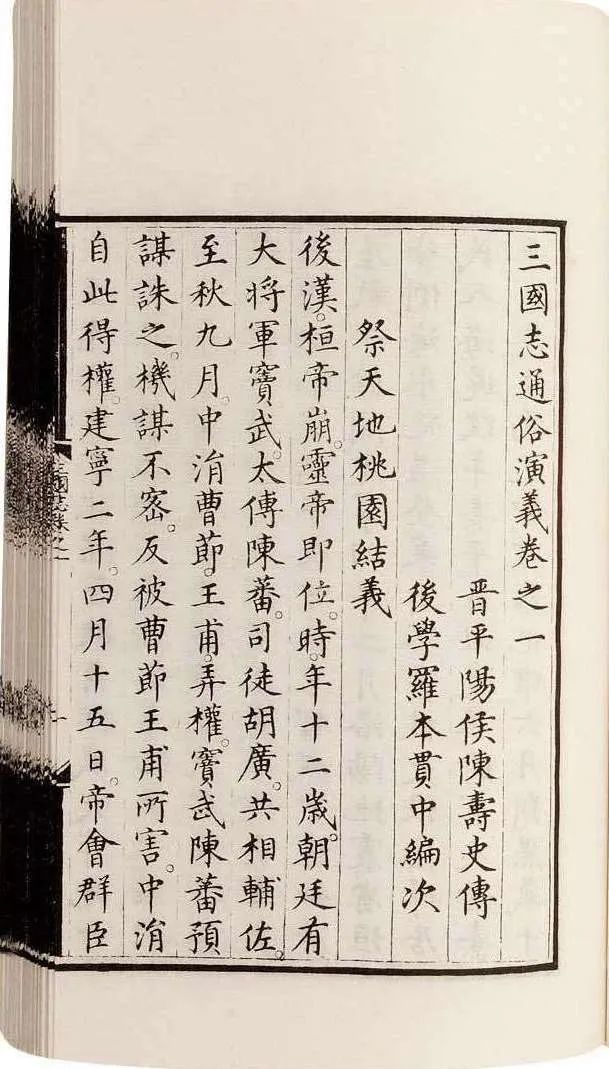 三國志通俗演義卷之一
晋平陽侯陳壽史傳
後學羅本貫中編次
祭天地桃園結義
後漢。桓帝崩。靈帝即位。時。年十二歲。朝廷有
大將軍竇武。太傅陳蕃。司徒胡廣。共相輔佐。
至秋九月。中涓曹節。王甫。弄權。竇武陳蕃預
謀誅之。機謀不密。反被曹節王甫所害。中涓
自此得權。建寧二年。四月十五日。帝會群臣